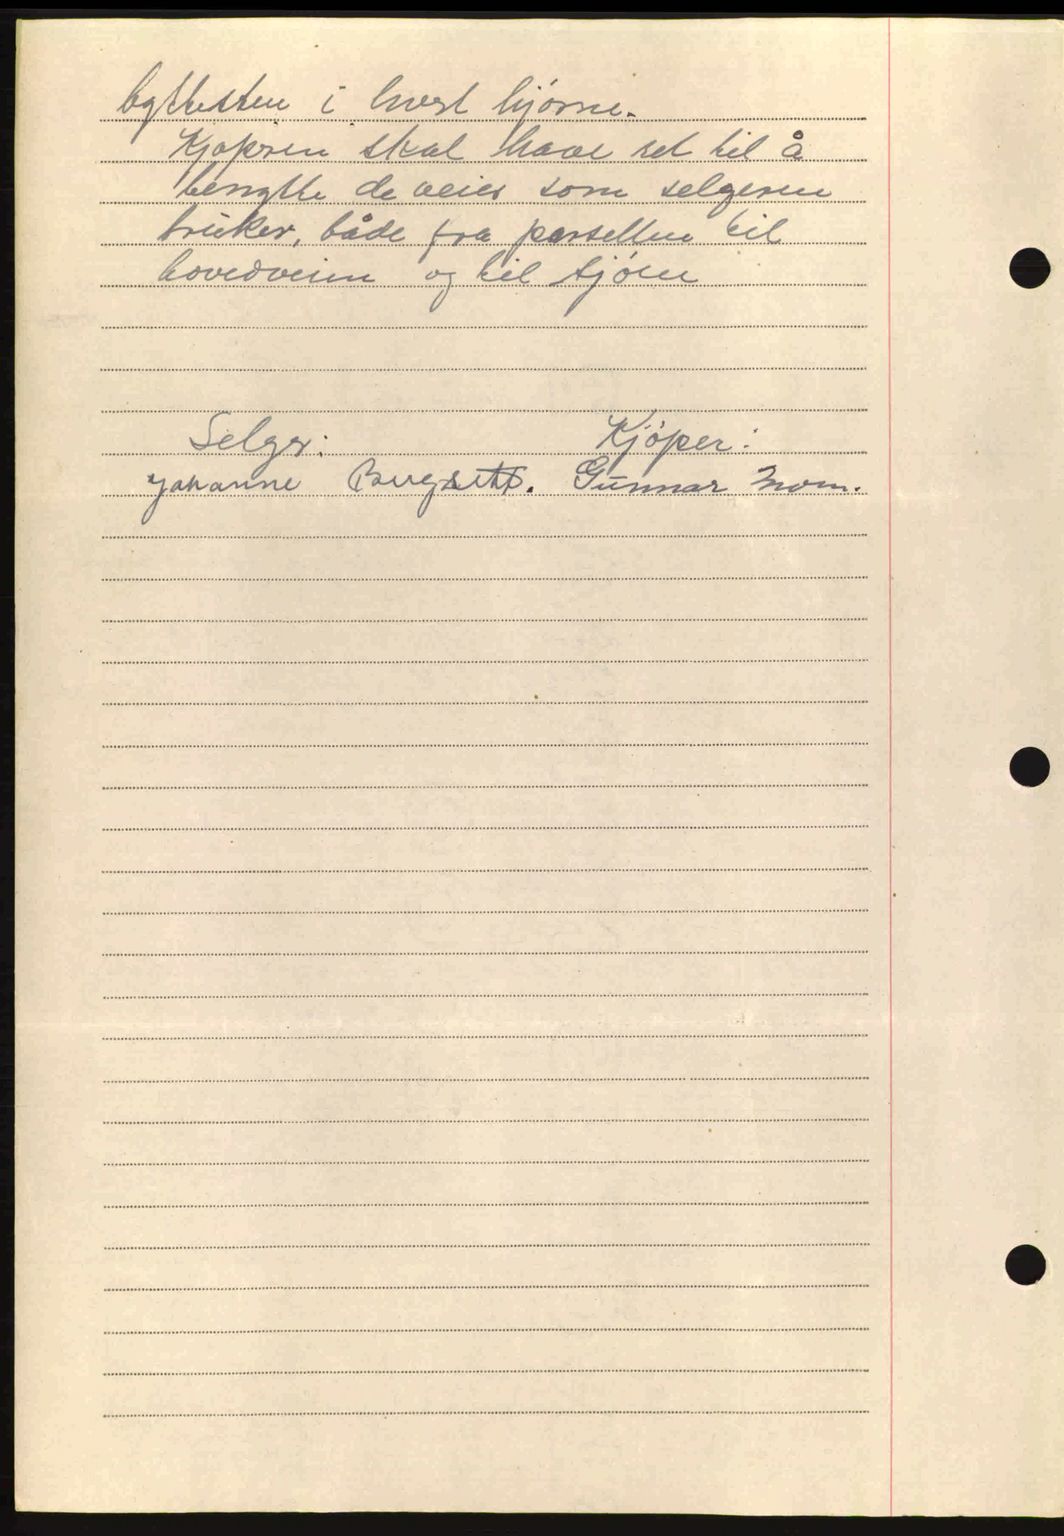 byttesten i hvert hjørne.
Kjøperen skal have ret til å
benytte de veier som selgeren
bruker, både fra parsellen til
hovedveien og til sjøen
Selger: Kjøper:
Johanne Bugseth. Gunnar Mom.